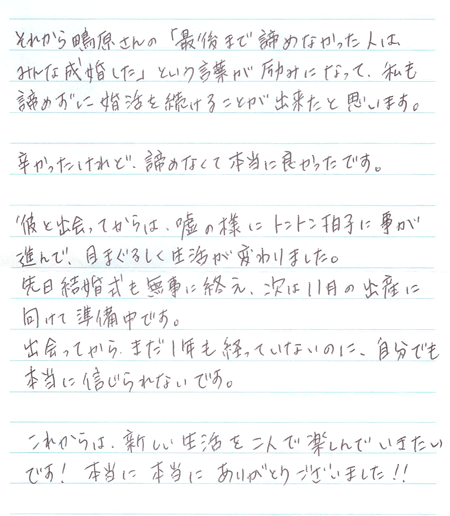 それから鴫原さんの「最後まで諦めなかった人は
みんな成婚した」という言葉が励みになって、私も
諦めずに婚活を続けることが出来たと思います。
辛かったけれど、諦めなくて本当に良かったです。
彼と出会ってからは、嘘の様にトントン拍子に事が
進んで、目まぐるしく生活が変わりました。
先日結婚式も無事に終え、次は11月の出産に
向けて準備中です。
出会ってから、まだ1年も経っていないのに、自分でも
本当に信じられないです。
これからは、新しい生活を二人で楽しんでいきたい
です! 本当に本当にありがとうございました!!